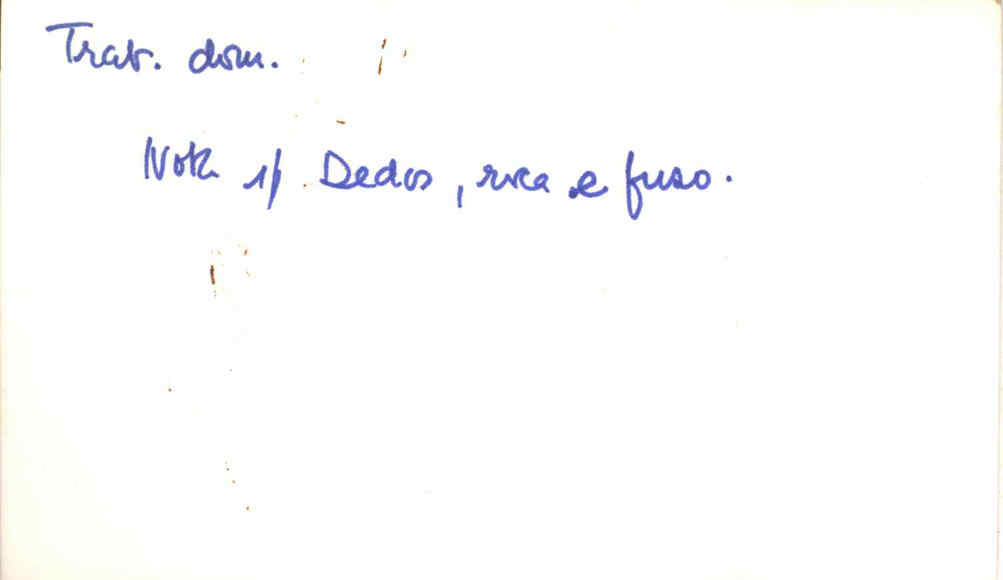 Trab. dom.
Nota s/ Dedos, roca e fuso.